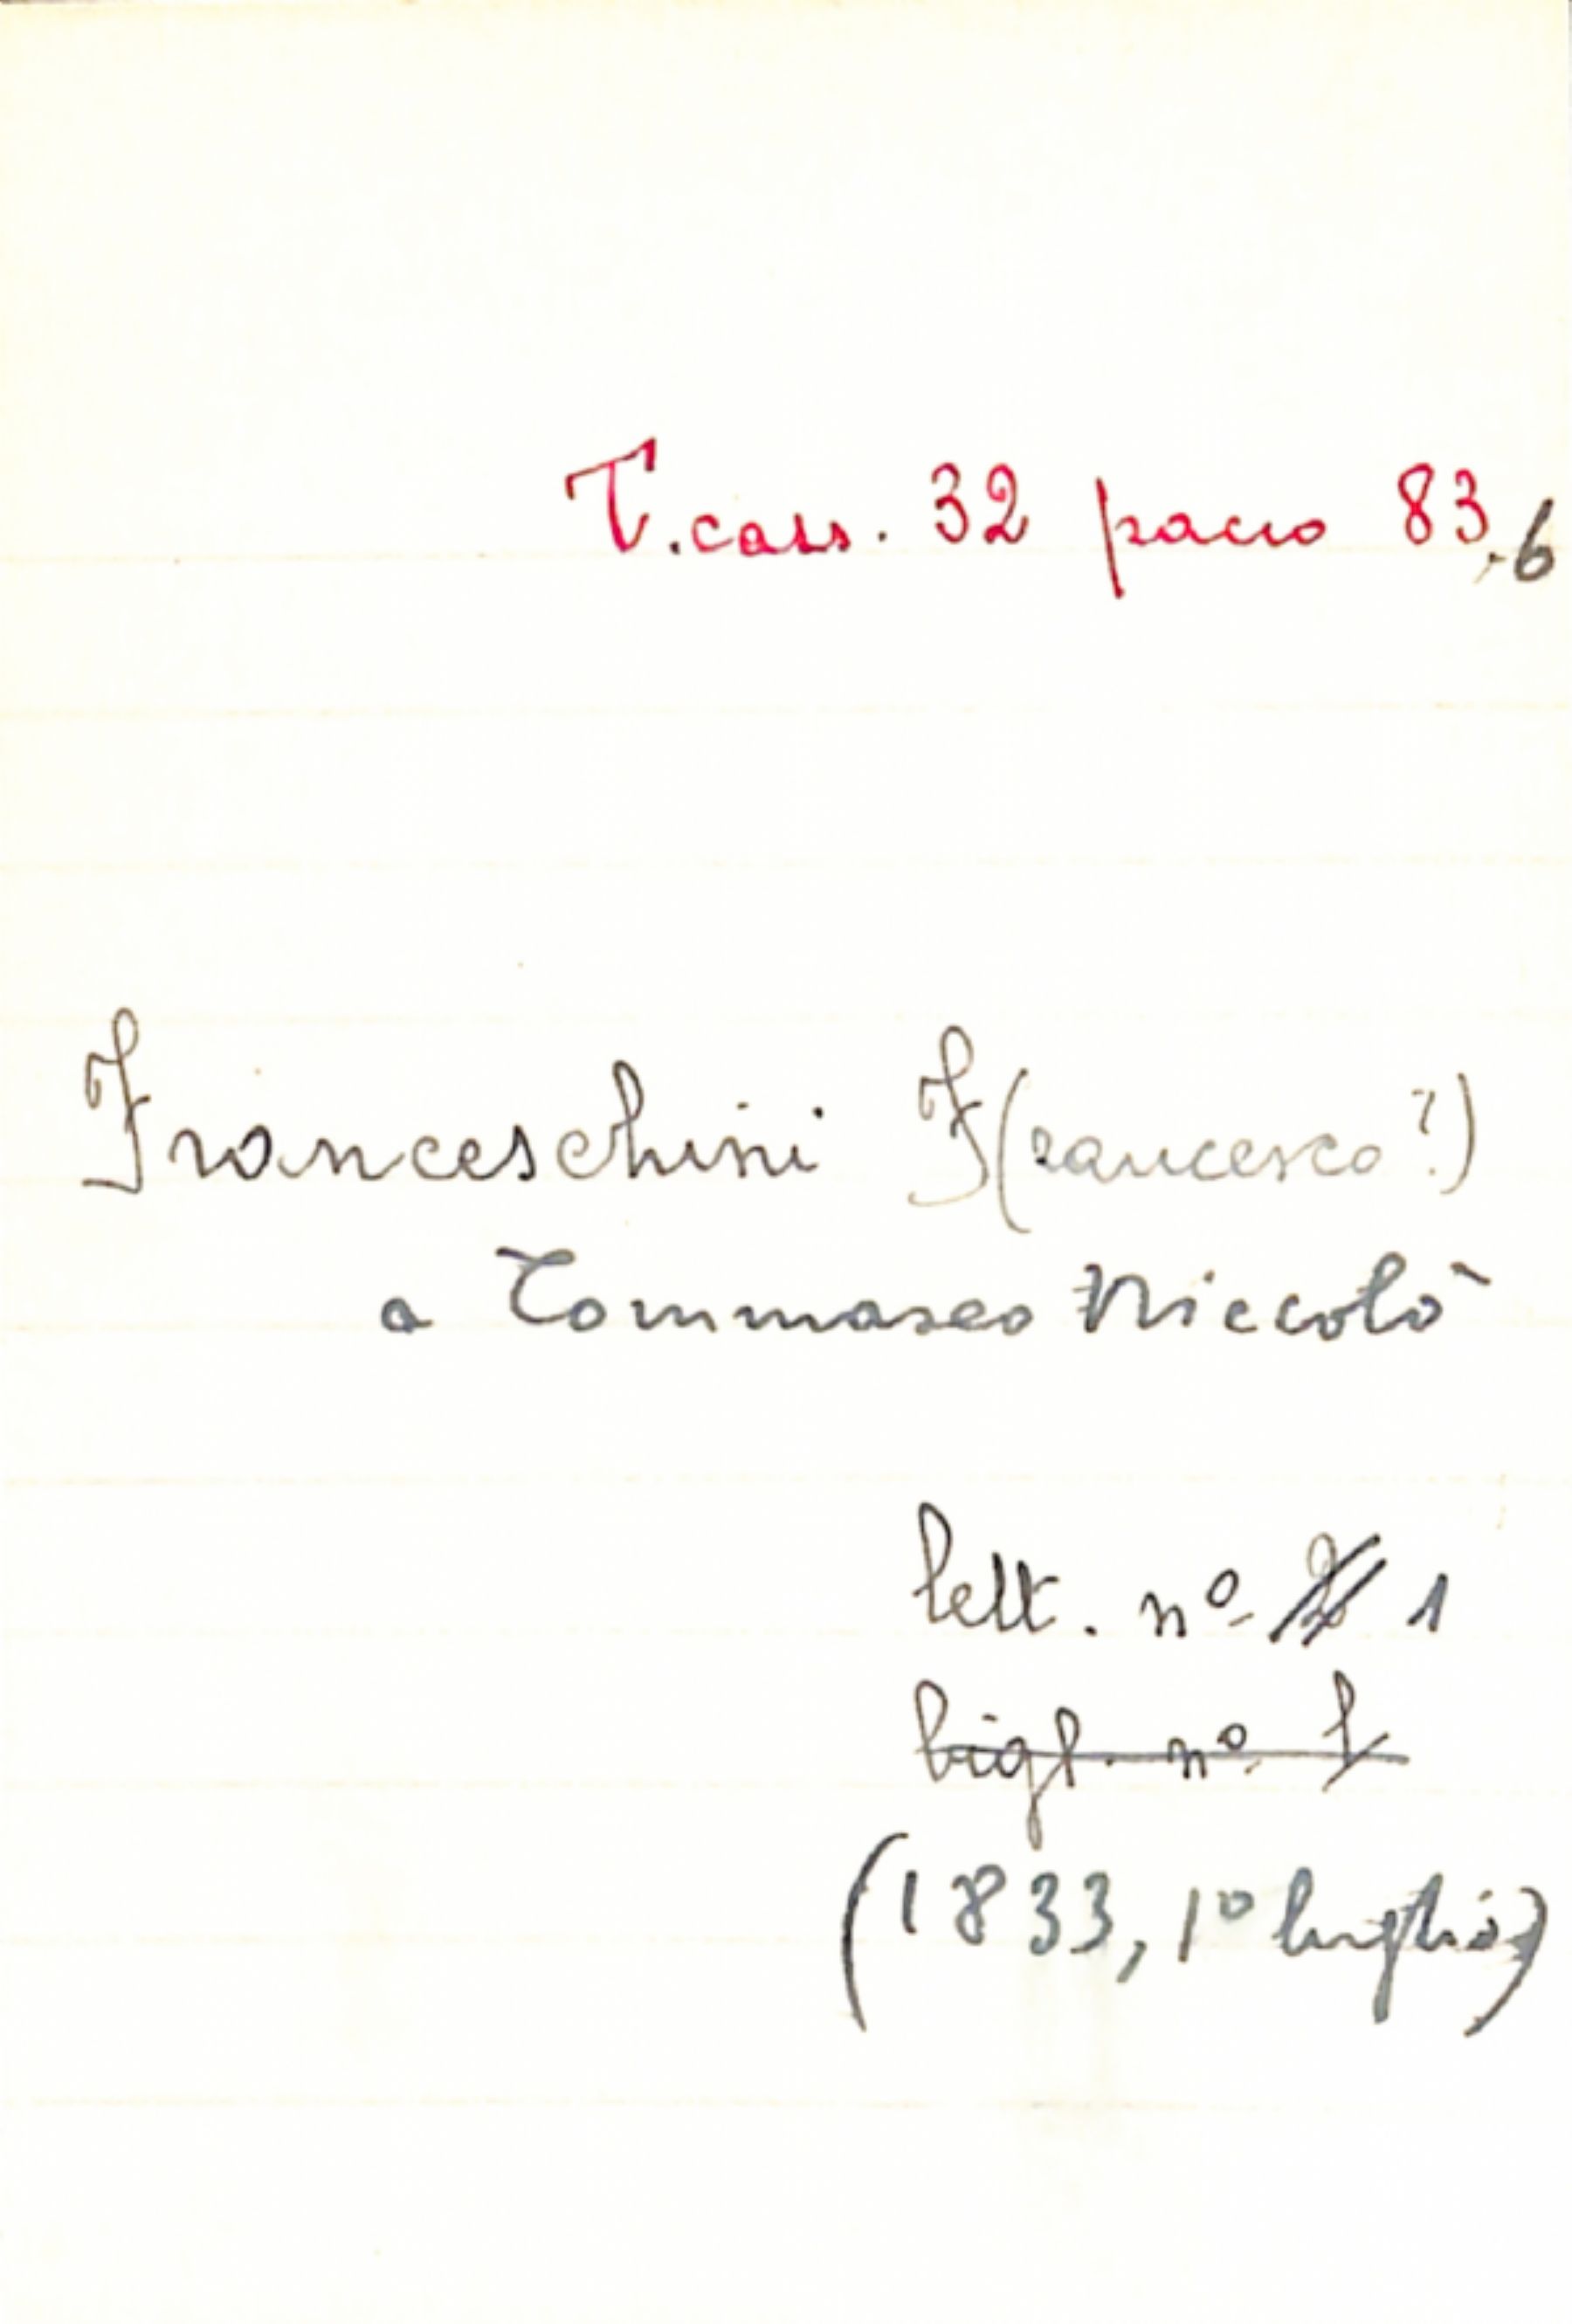 T. cass. 32 pacco 83,6
Franceschini F(rancesco?)
a Tommaseo Niccolò
lett. nº 1
bigl. nº 1
(1833, 1º luglio)